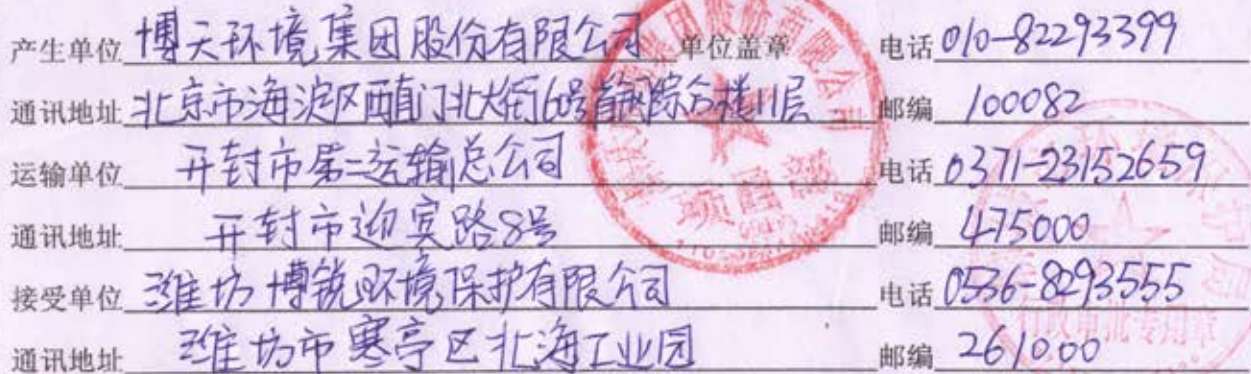 产生单位 博天环境集团股份有限公司 单位盖章 电话 010-82293399
通讯地址 北京市海淀区西直门北大街60号首钢综合楼11层 邮编 100082
运输单位 开封市第二运输总公司 电话 0371-23152659
通讯地址 开封市迎宾路8号 邮编 475000
接受单位 潍坊博锐环境保护有限公司 电话 0536-8293555
通讯地址 潍坊市寒亭区北海工业园 邮编 261000
项目部
行政审批专用章